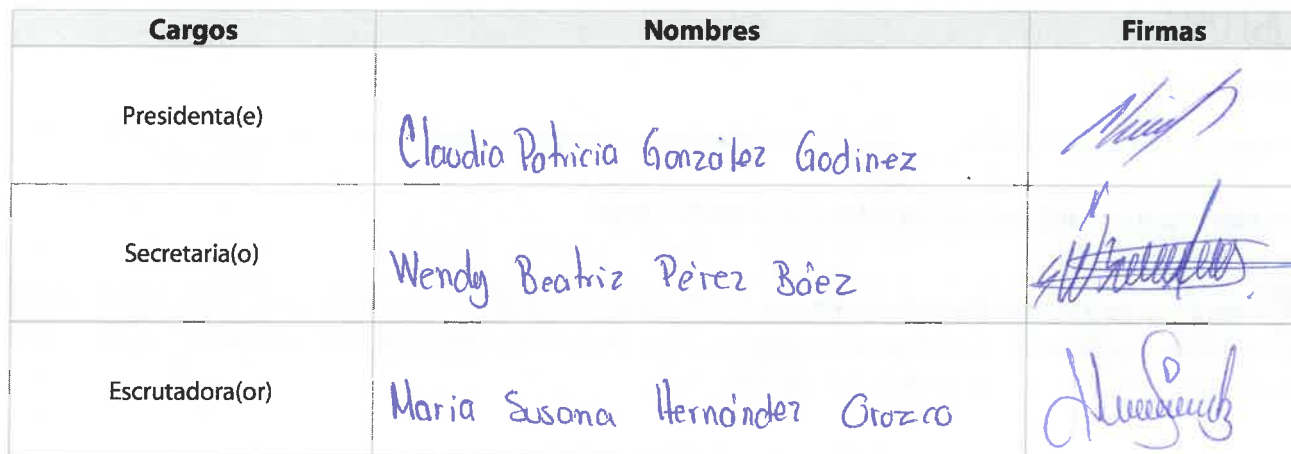 Cargos Nombres Firmas
Presidenta(e) Claudia Patricia González Godinez
Secretaria(o) Wendy Beatriz Pérez Báez
Escrutadora(or) Maria Susana Hernández Orozco